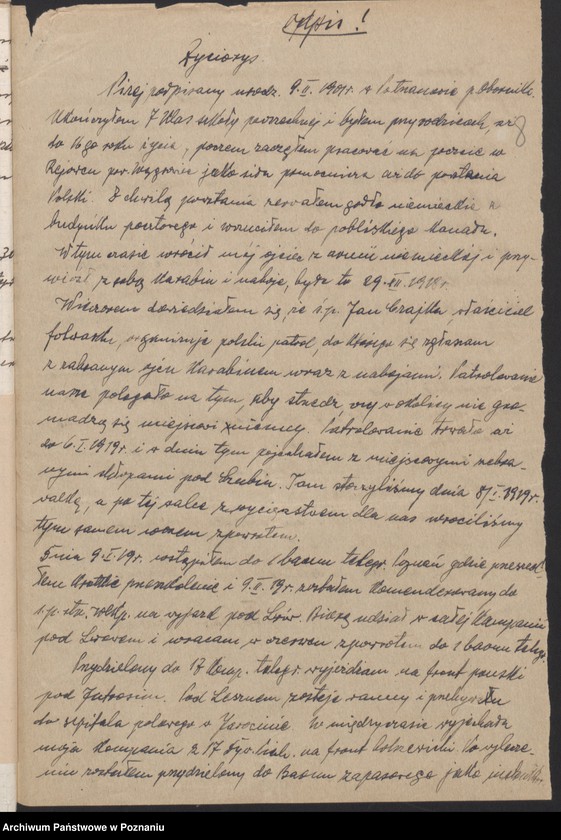 odpis!
Życiorys.
Niżej podpisany urodz. 9.II. 1901r. w p. Oborniki.
Ukończyłem 7 klas szkoły powszechnej i byłem przy rodzicach, aż
8
do 16go roku życia, poczem zacząłem pracować na poczcie w
Rejowcu pow. Wągrowiec jako siła pomocnicza aż do powstania
Polski. Z chwilą powstania zerwałem godło niemieckie z
budynku pocztowego i wrzuciłem do pobliskiego kanału.
W tym czasie wrócił mój ojciec z armii niemieckiej i przy-
wiózł z sobą karabin i naboje, było to 29.XII.1918r.
Wieczorem dowiedziałem się że ś.p. Jan Czajka, właściciel
folwarku, organizuje polski patrol, do którego się zgłaszam
z zabranym ojcu karabinem wraz z nabojami. Patrolowanie
nasze polegało na tym, aby strzedz, czy w okolicy nie gro-
madzą się miejscowi niemcy. Patrolowanie trwało aż
do 6.I.1919r. i w dniu tym pojechałem z miejscowymi zebra-
nymi chłopami pod Szubin. Tam stoczyliśmy dnia 8/I.1919r.
walkę, a po tej walce z zwycięstwem dla nas wróciliśmy
tym samem wozem zpowrotem.
Dnia 9.I.19r. wstąpiłem do 1 baonu telegr. Poznań gdzie przeszed-
łem krótkie przeszkolenie i 9.II.19r. zostałem komenderowany do
1.p. strz. wlkp. na wyjazd pod Lwów. Biorę udział w całej kampanii
pod Lwowem i wracam w czerwcu zpowrotem do 1 baonu telegr.
Przydzielony do 17 komp. telegr. wyjeżdżam na front pruski
pod Jutrosin. Pod Lesznem zostaję ranny i przebywam
do szpitala polowego w Jarocinie. W międzyczasie wyjechała
moja kompania z 17 dyw. na front bolszewicki. Po wylecze-
niu zostałem przydzielony do Baonu zapasowego jako
Archiwum Państwowe w Poznaniu